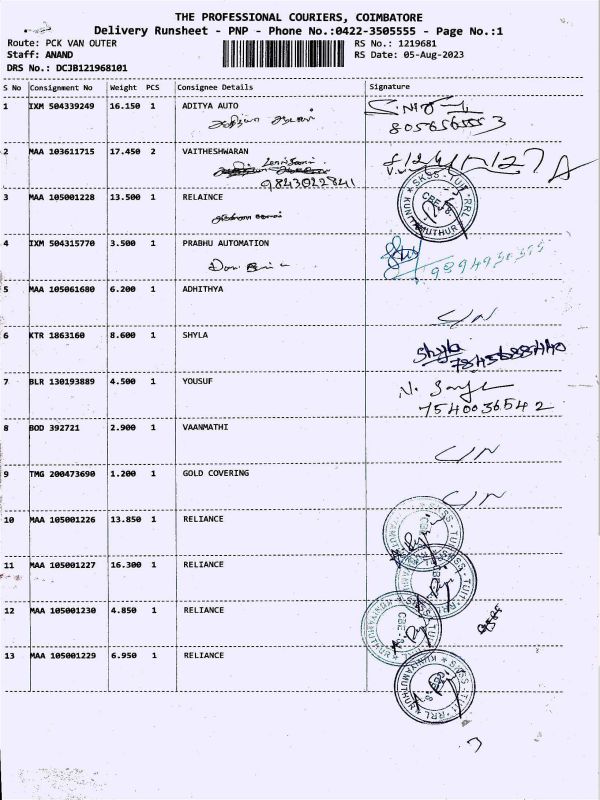 THE PROFESSIONAL COURIERS, COIMBATORE
Delivery Runsheet - PNP - Phone No.:0422-3505555 - Page No.:1
Route: PCK VAN OUTER RS No.: 1219681
Staff: ANAND RS Date: 05-Aug-2023
DRS No.: DCJB121968101
S No Consignment No Weight PCS Consignee Details Signature
1 IXM 504339249 16.150 1 ADITYA AUTO
8056565553
2 MAA 103611715 17.450 2 VAITHESHWARAN
9843022841
3 MAA 105001228 13.500 1 RELAINCE
SKSS - TUIT - RRL
CBE-8
KUNIYAMUTHUR
4 IXM 504315770 3.500 1 PRABHU AUTOMATION
5 MAA 105061680 6.200 1 ADHITHYA
6 KTR 1863160 8.600 1 SHYLA
Shyla
7 BLR 130193889 4.500 1 YOUSUF
7540036542
8 BOD 392721 2.900 1 VAANMATHI
9 TMG 200473690 1.200 1 GOLD COVERING
10 MAA 105001226 13.850 1 RELIANCE
11 MAA 105001227 16.300 1 RELIANCE
12 MAA 105001230 4.850 1 RELIANCE
13 MAA 105001229 6.950 1 RELIANCE
SKSS - TUIT - RRL
CBE-8
KUNIYAMUTHUR